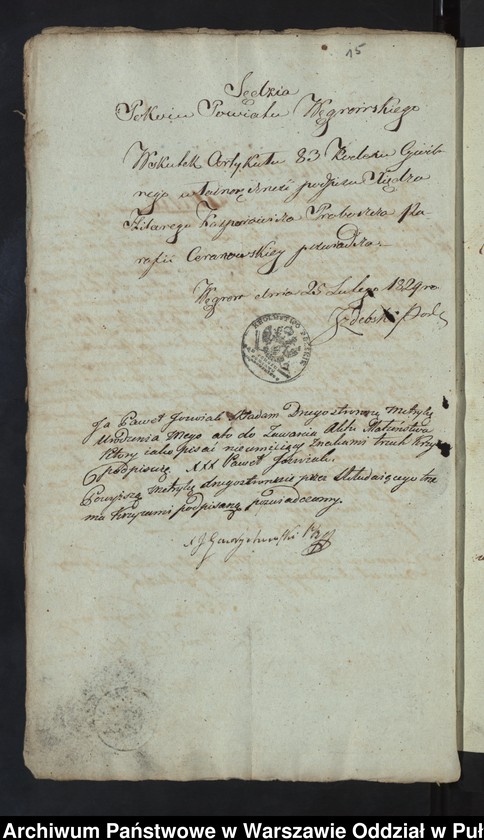 15
Sędzia
Pokoiu Powiatu Węgrowskiego
Wskutek Artykułu 83 Kodexu Cywil-
nego własnoręczność podpisu Xiędza
Hilarego Kasprowicza Proboszcza Pa-
rafii Ceranowskiey poswiadcza.
Węgrow dnia 25 Lutego 1829 ro
Ja Paweł Jozwiak Składam Drugostronną Metrykę
Urodzenia Mego ato do Zawarcia Aktu Małżeństwa
Ktory iako pisać nieumieiący Znakami trzech Krzy-
podpisuię XXX Paweł Jozwiak.
Powyższą Metrykę drugostronnie przez Składaiącego trze
ma Krzyżami podpisaną poswiadczamy.
Archiwum Państwowe w Warszawie Oddział w Puł